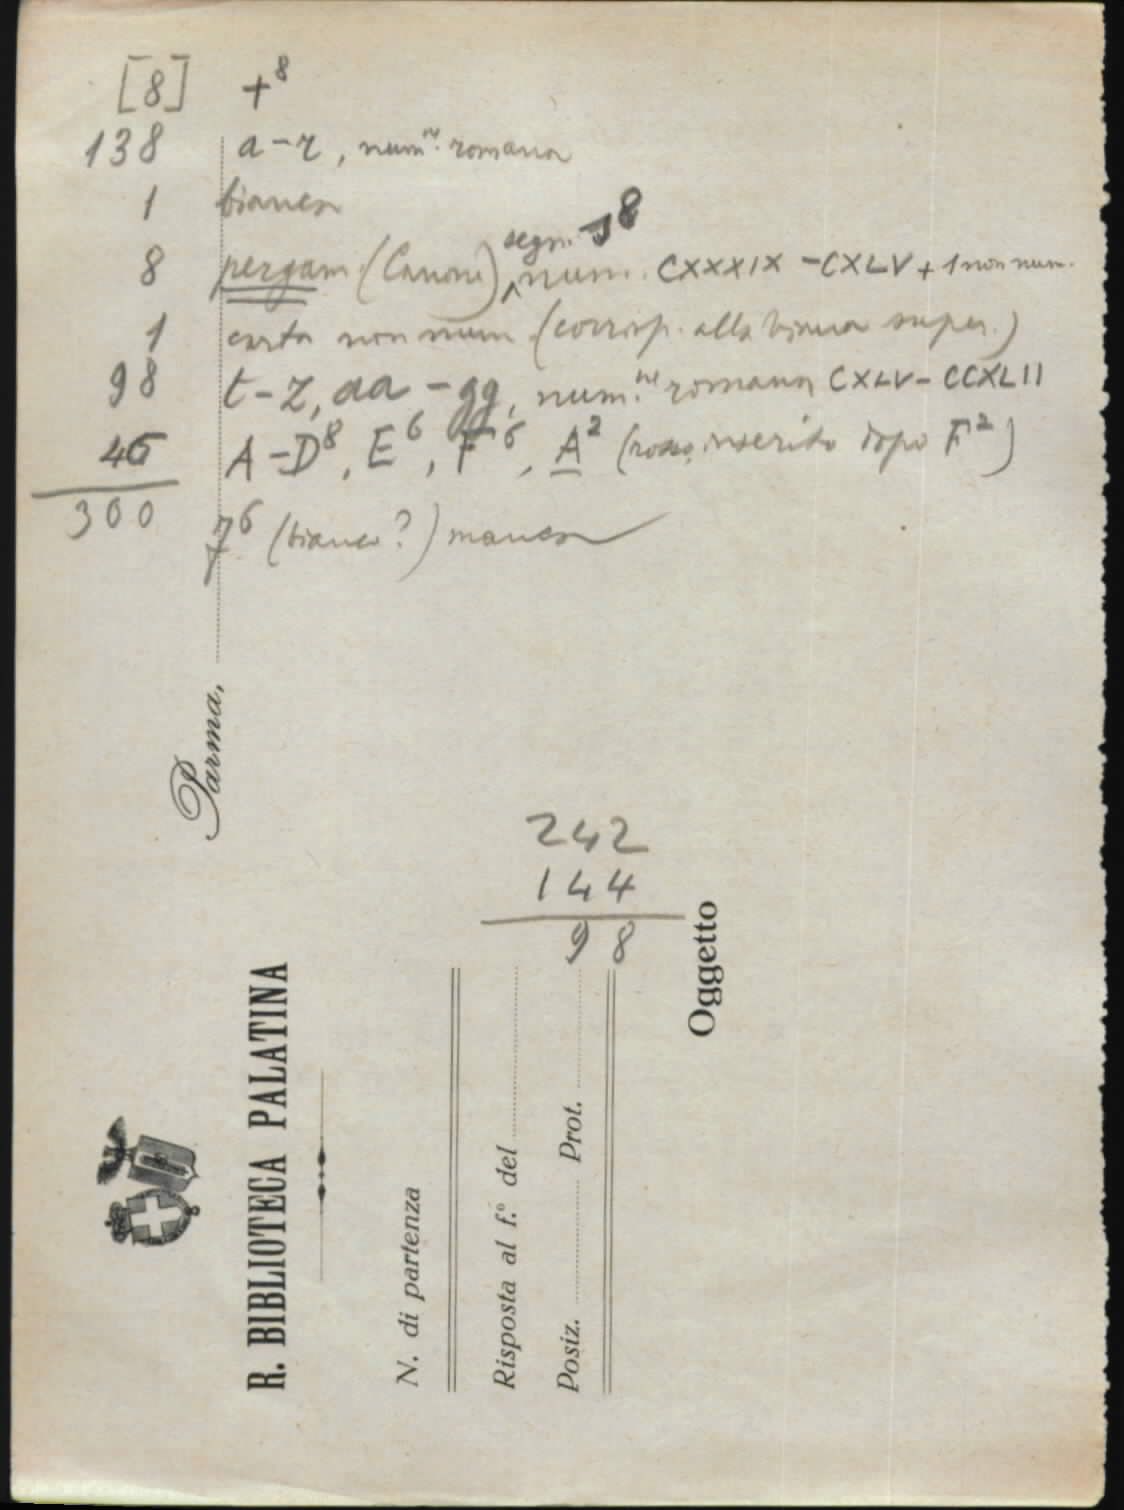 [8] +8
138 a-r, num.ne romana
1 bianca
segn. 8
8 pergam. (Canone) num. CXXXIX - CXLV + 1 non num.
1 carta non num. (corrisp. alla bianca super.)
98 t-z, aa-gg, num.ne romana CXLV - CCXLII
A-D8, E6, F6, A2 (rosso, inserito dopo F2)
300
F6 (bianco?) manca
Parma,
242
144
98
R. BIBLIOTECA PALATINA
N. di partenza
Risposta al f.º del
Posiz. Prot.
Oggetto